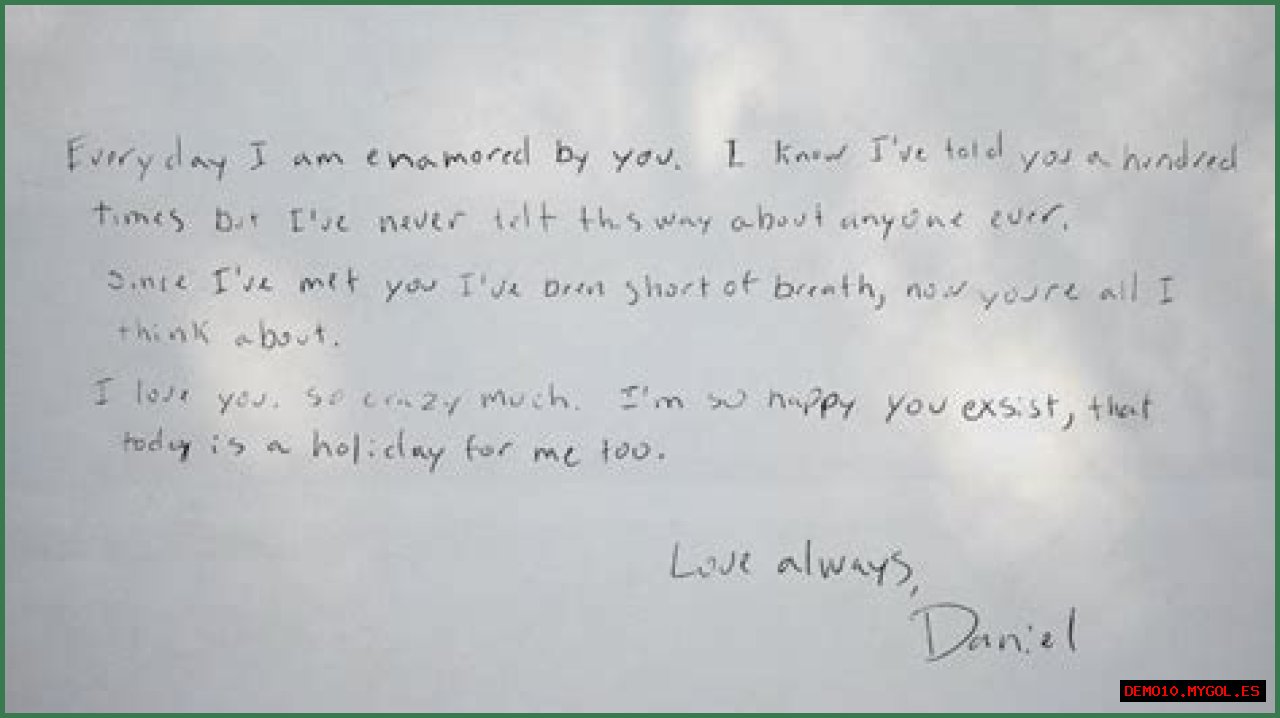 Everyday I am enamored by you. I know I've told you a hundred
times but I've never felt this way about anyone ever.
Since I've met you I've been short of breath, now youre all I
think about.
I love you. so crazy much. I'm so happy you exsist, that
today is a holiday for me too.
Love always,
Daniel
DEMO10.MYGOL.ES